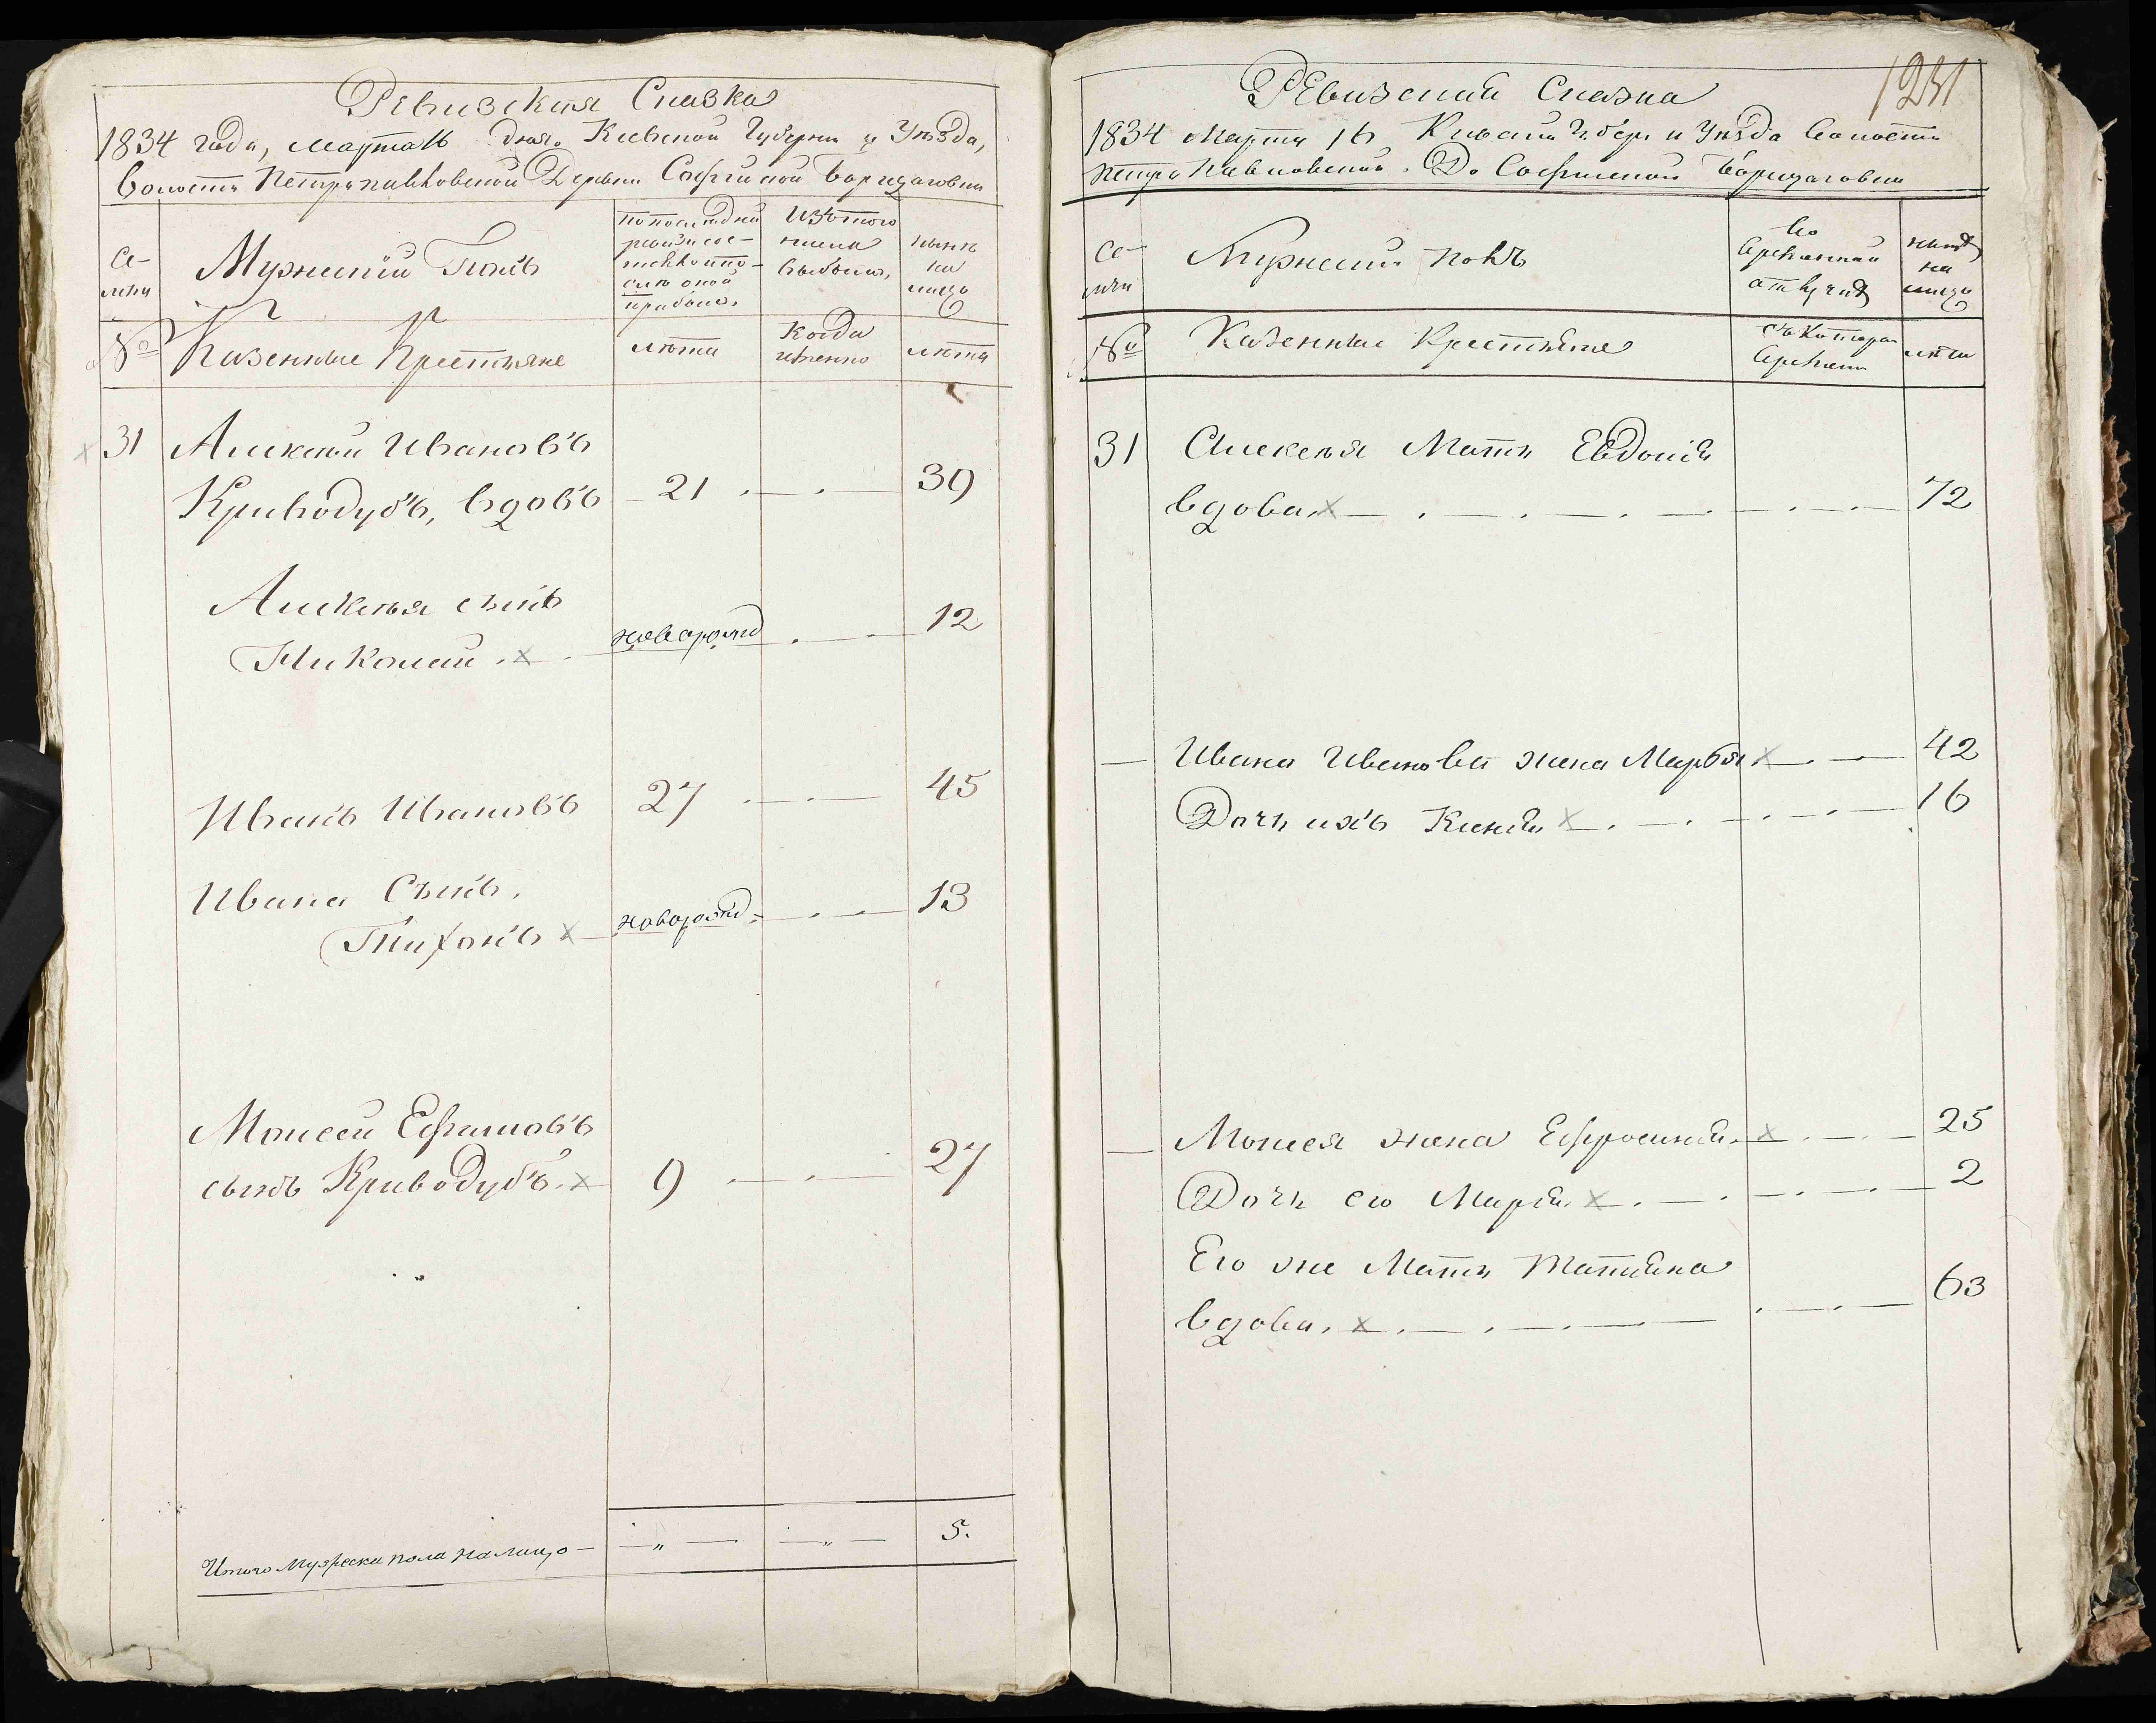 Ревизская Сказка
1834 года, марта 16 дня. Киевской Губернии и Уѣзда,
Волости Петропавловской Деревни Софiиской Борщаговки
Се-
мьи
Мужеский Полъ
По последней
ревизии сос-
тояло и по-
слѣ оной
прибыло.
Изътого
числа
выбыло,
нынѣ
на
лицо
№
Казенные Крестьяне
лѣта
Когда
именно
лѣта
31
Алексѣй Ивановъ
Криводубъ, вдовъ
21
39
Алексѣя сынъ
Николай
новорожд
12
Иванъ Ивановъ
27
45
Ивана Сынъ,
Тихонъ
новорожд
13
Моисей Ефимовъ
сынъ Криводубъ
9
27
Итого мужеска пола налицо
5.
1231
Ревизская Сказка
1834 Марта 16 Киевской Губер и Уѣзда Волости
Петропавловской. Д. Софиской Борщаговки
Се-
мьи
Мужеский полъ
Во
временной
отлучкѣ
нынѣ
на
лицо
№
Казенные Крестьяне
съ котора
времени
лѣта
31
Алексѣя Мать Евдокiя
вдова
72
Ивана Иванова жена Марья
42
Дочь ихъ Ксенiя
16
Моисея жена Ефросинiя
25
Дочь его Марiя
2
Его же Мать Татiяна
вдова,
63